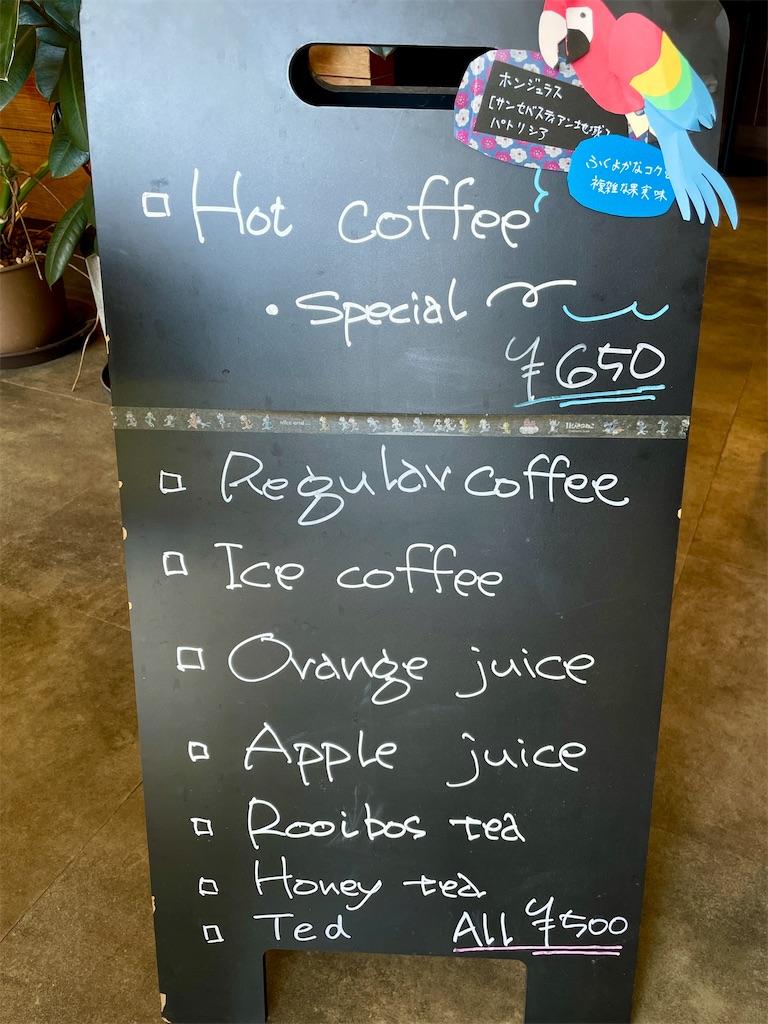 ホンジュラス
[サンセバスティアン地域]
パトリシア
ふくよかなコクと
複雑な果実味
□ Hot coffee
・Special
¥650
□ Regular coffee
□ Ice coffee
□ Orange juice
□ Apple juice
□ Rooibos tea
□ Honey tea
□ Tea All ¥500